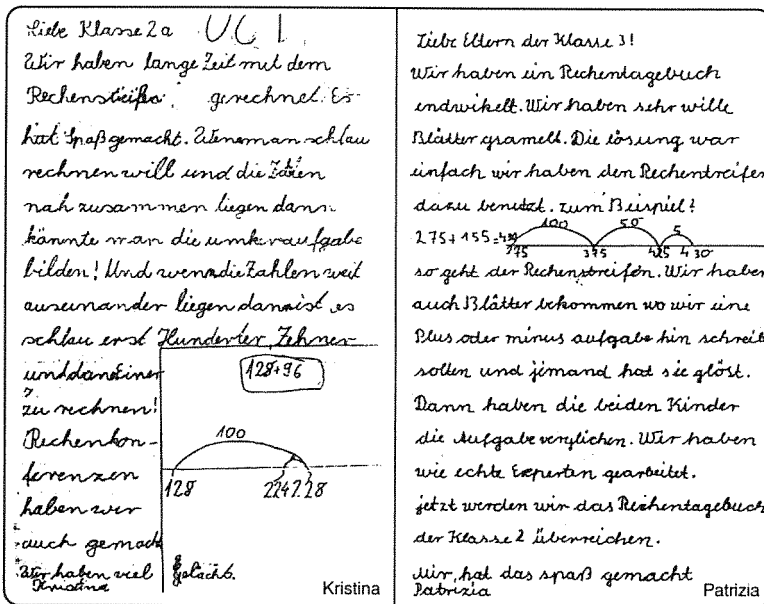 Liebe Klasse 2a
Wir haben lange Zeit mit dem
Rechenstreifen gerechnet. Es
hat Spaß gemacht. Wenn man schlau
rechnen will und die Zahlen
nah zusammen liegen dann
könnte man die umkeraufgabe
bilden! Und wenn die Zahlen weit
auseinander liegen dann ist es
schlau erst Hunderter, Zehner
und dan Einer
zu rechnen!
Rechenkon-
ferenzen
haben wir
auch gemacht
Wir haben viel gelacht.
Kristina
128+96
100
128
224
228
Kristina
Liebe Eltern der Klasse 3!
Wir haben ein Rechentagebuch
endwikelt. Wir haben sehr wille
Blätter gsamelt. Die lösung war
einfach wir haben den Rechentreifen
dazu benutzt. zum Beispiel?
100 50 5
275+155=430 275 375 425 430
so geht der Rechenstreifen. Wir haben
auch Blätter bekommen wo wir eine
Plus oder minus aufgabe hin schreib
sollten und jemand hat sie glöst.
Dann haben die beiden Kinder
die Aufgabe verglichen. Wir haben
wie echte Experten gearbeitet.
jetzt werden wir das Rechentagebuch
der Klasse 2 überreichen.
Mir, hat das spaß gemacht
Patrizia
Patrizia